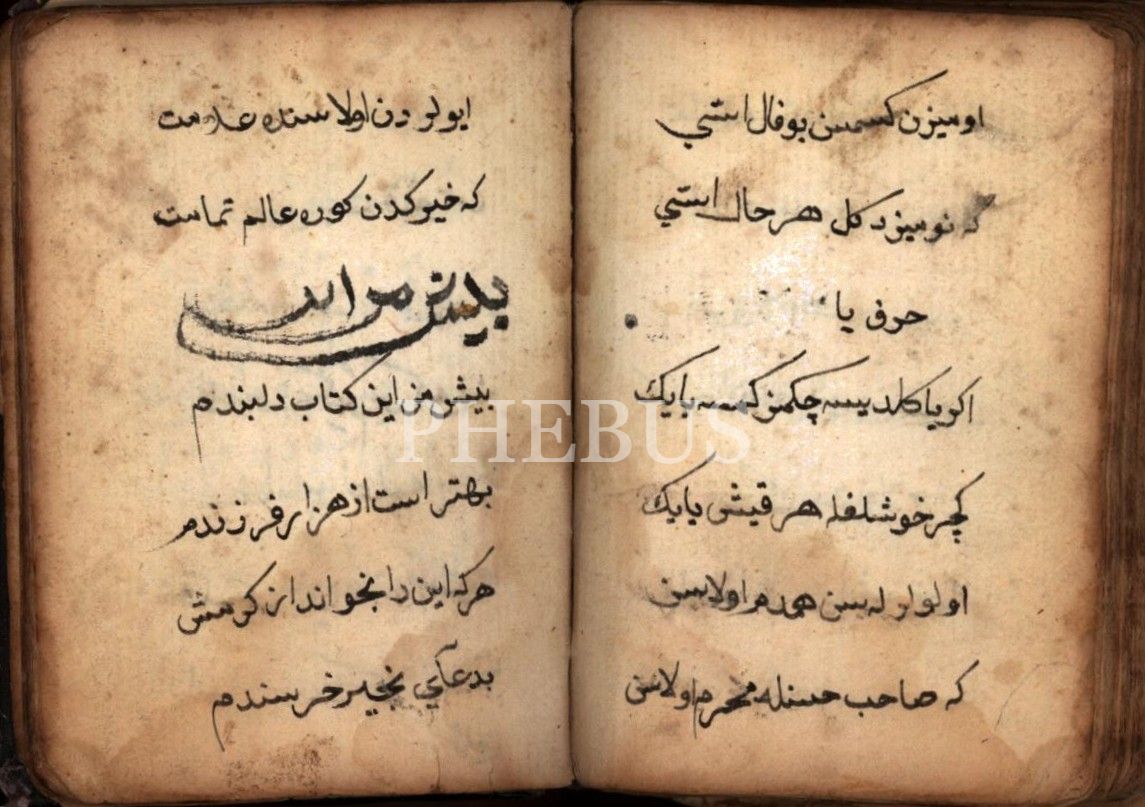 اومیزن کسمسن بوفال استی
که نومیزدکل هرحال استی
حرف یا
اکر یا کلدیسه چکمز کمسه یایک
کچر خوشلغله هر قیش یایک
اولولرله سن همدم اولاسن
که صاحب حسنله محرم اولاسن
ایولردن اولا سنده علامت
که خیرکدن کوره عالم تمامت
بیش من این کتاب دلبندم
بهتر است از هزار فرزندم
هرکه این را بخواند از کرمش
بدعای بخیر خرسندم
PHEBUS